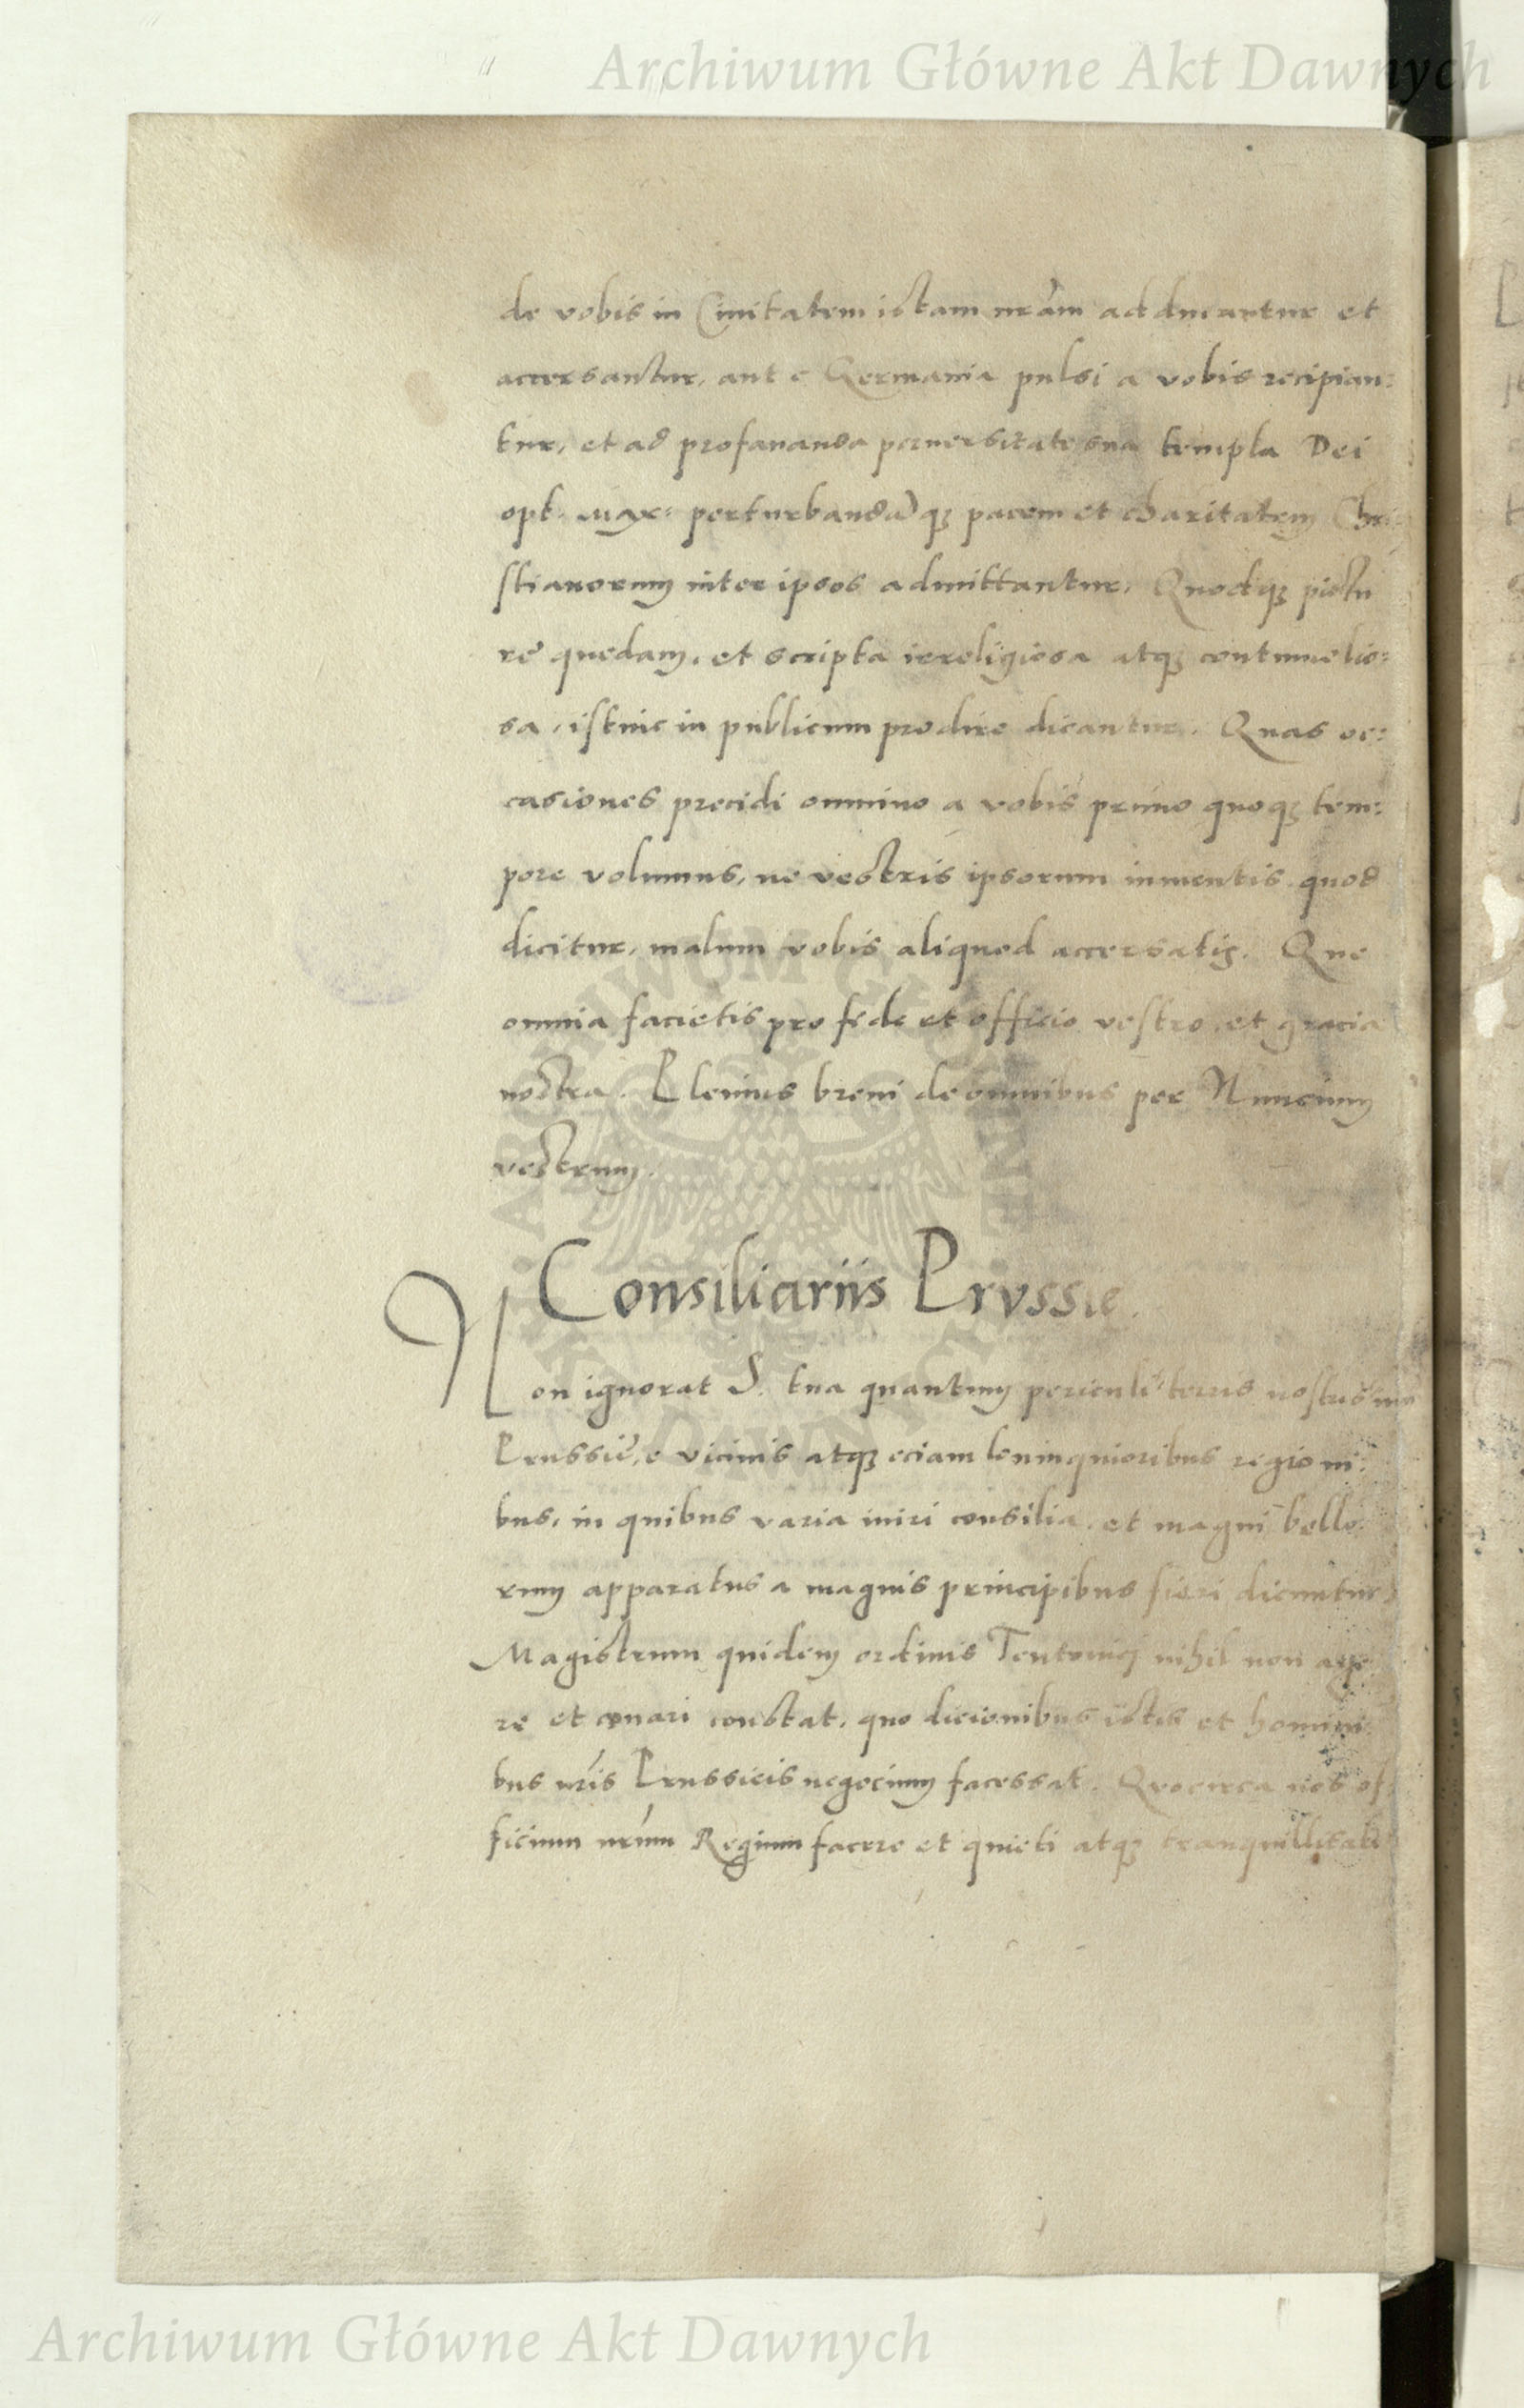 Archiwum Główne Akt Dawnych
de vobis in Civitatem istam nrãm adducantur et
accersantur, aut e Germania pulsi a vobis recipian:
tur, et ad profananda perversitate sua templa Dei
opt. Max: perturbandãq; pacem et charitatem Chri:
stianorum inter ipsos admittantur. Quodq; pictu
re quedam, et scripta irreligiosa atq; contumelio:
sa, istuic in publicum prodire dicantur. Quas oc:
casiones precidi omnino a vobis primo quoq; tem:
pore volumus, ne vestris ipsorum inventis quod
dicitur, malum vobis aliquod accersatis. Que
omnia facietis pro fide et officio vestro, et gracia
nostra. Plenius brevi de omnibus per Nuncium
vestrum.
Consiliariis Prussie.
Non ignorat S. tua quantum periculi terris nostris
Prussie, e vicinis atq; eciam longinquioribus regioni:
bus, in quibus varia iniri consilia, et magni bello:
rum apparatus a magnis principibus fieri dicuntur,
Magistrum quidem ordinis Teutonici nihil non age
re et conari constat, quo dicionibus istis et homini:
bus nris Prussicis negocium facessat. Quocirca nos of:
ficium nrum Regium facere et quieti atq; tranquillitati
Archiwum Główne Akt Dawnych